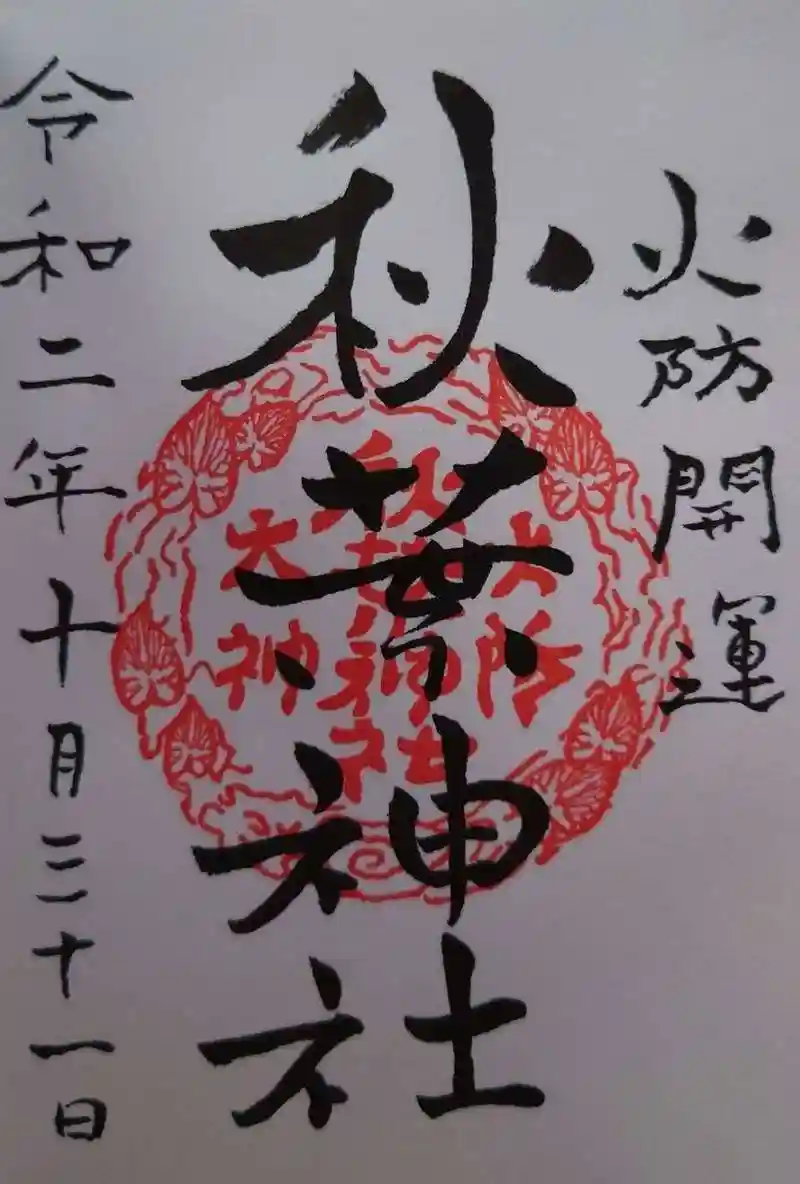 火防開運
秋葉神社
令和二年十月三十一日
火防
秋葉神社
大神